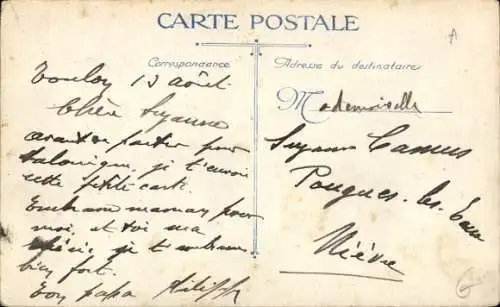 CARTE POSTALE
Correspondance
Adresse du destinataire
Toulon 13 août.
Chère Suzanne
avant de partir pour
Salonique, je t'envoie
cette petite carte.
Embrasse maman pour
moi, et toi ma
chérie, je t'embrasse
bien fort.
Ton papa
Mademoiselle
Suzanne Camus
Pougues-les-Eaux
Nièvre